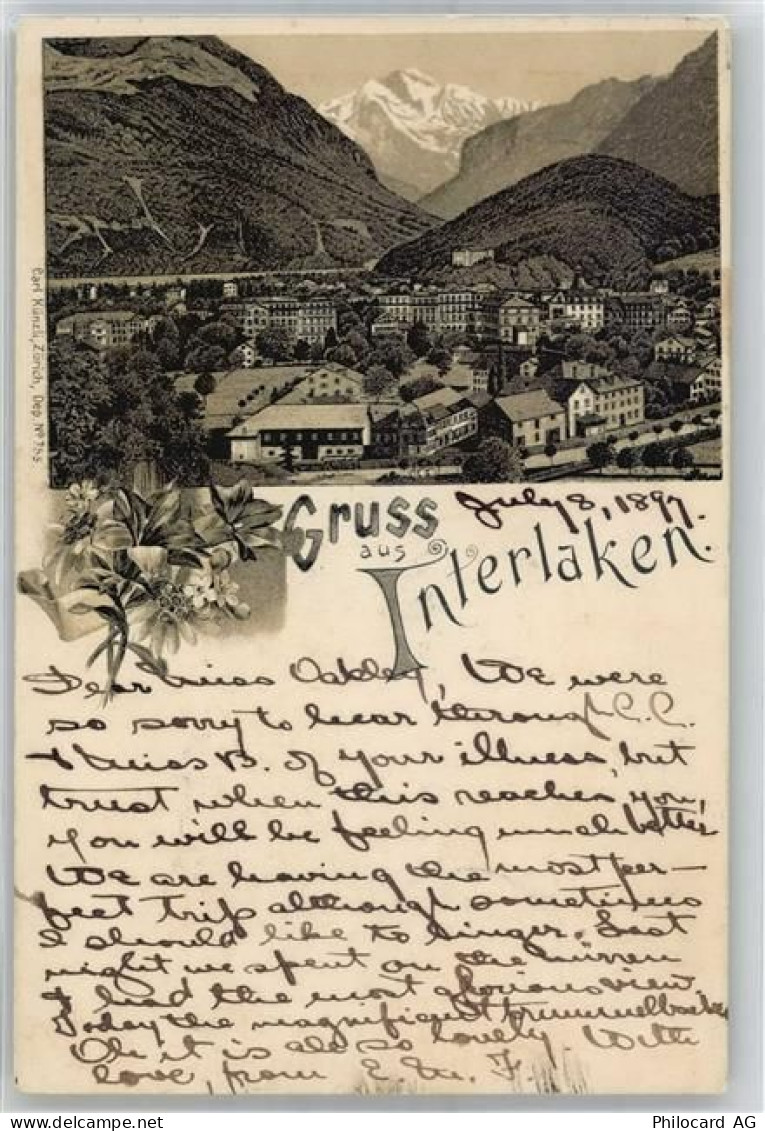 Carl Künzli, Zürich, Dep. Nº 755
July 8, 1897.
Gruss
aus
Interlaken.
Dear Miss Oakley, We were
so sorry to hear through C.C.
+ Miss B. of your illness, but
trust when this reaches you,
you will be feeling much better
We are having the most per-
fect trip although sometimes
I should like to linger. Last
night we spent on the Mürren
& had the most glorious view.
Today the magnificent Trummelbach
Oh it is all so lovely. With
love, from E. M. F.
delcampe.net
Philocard AG